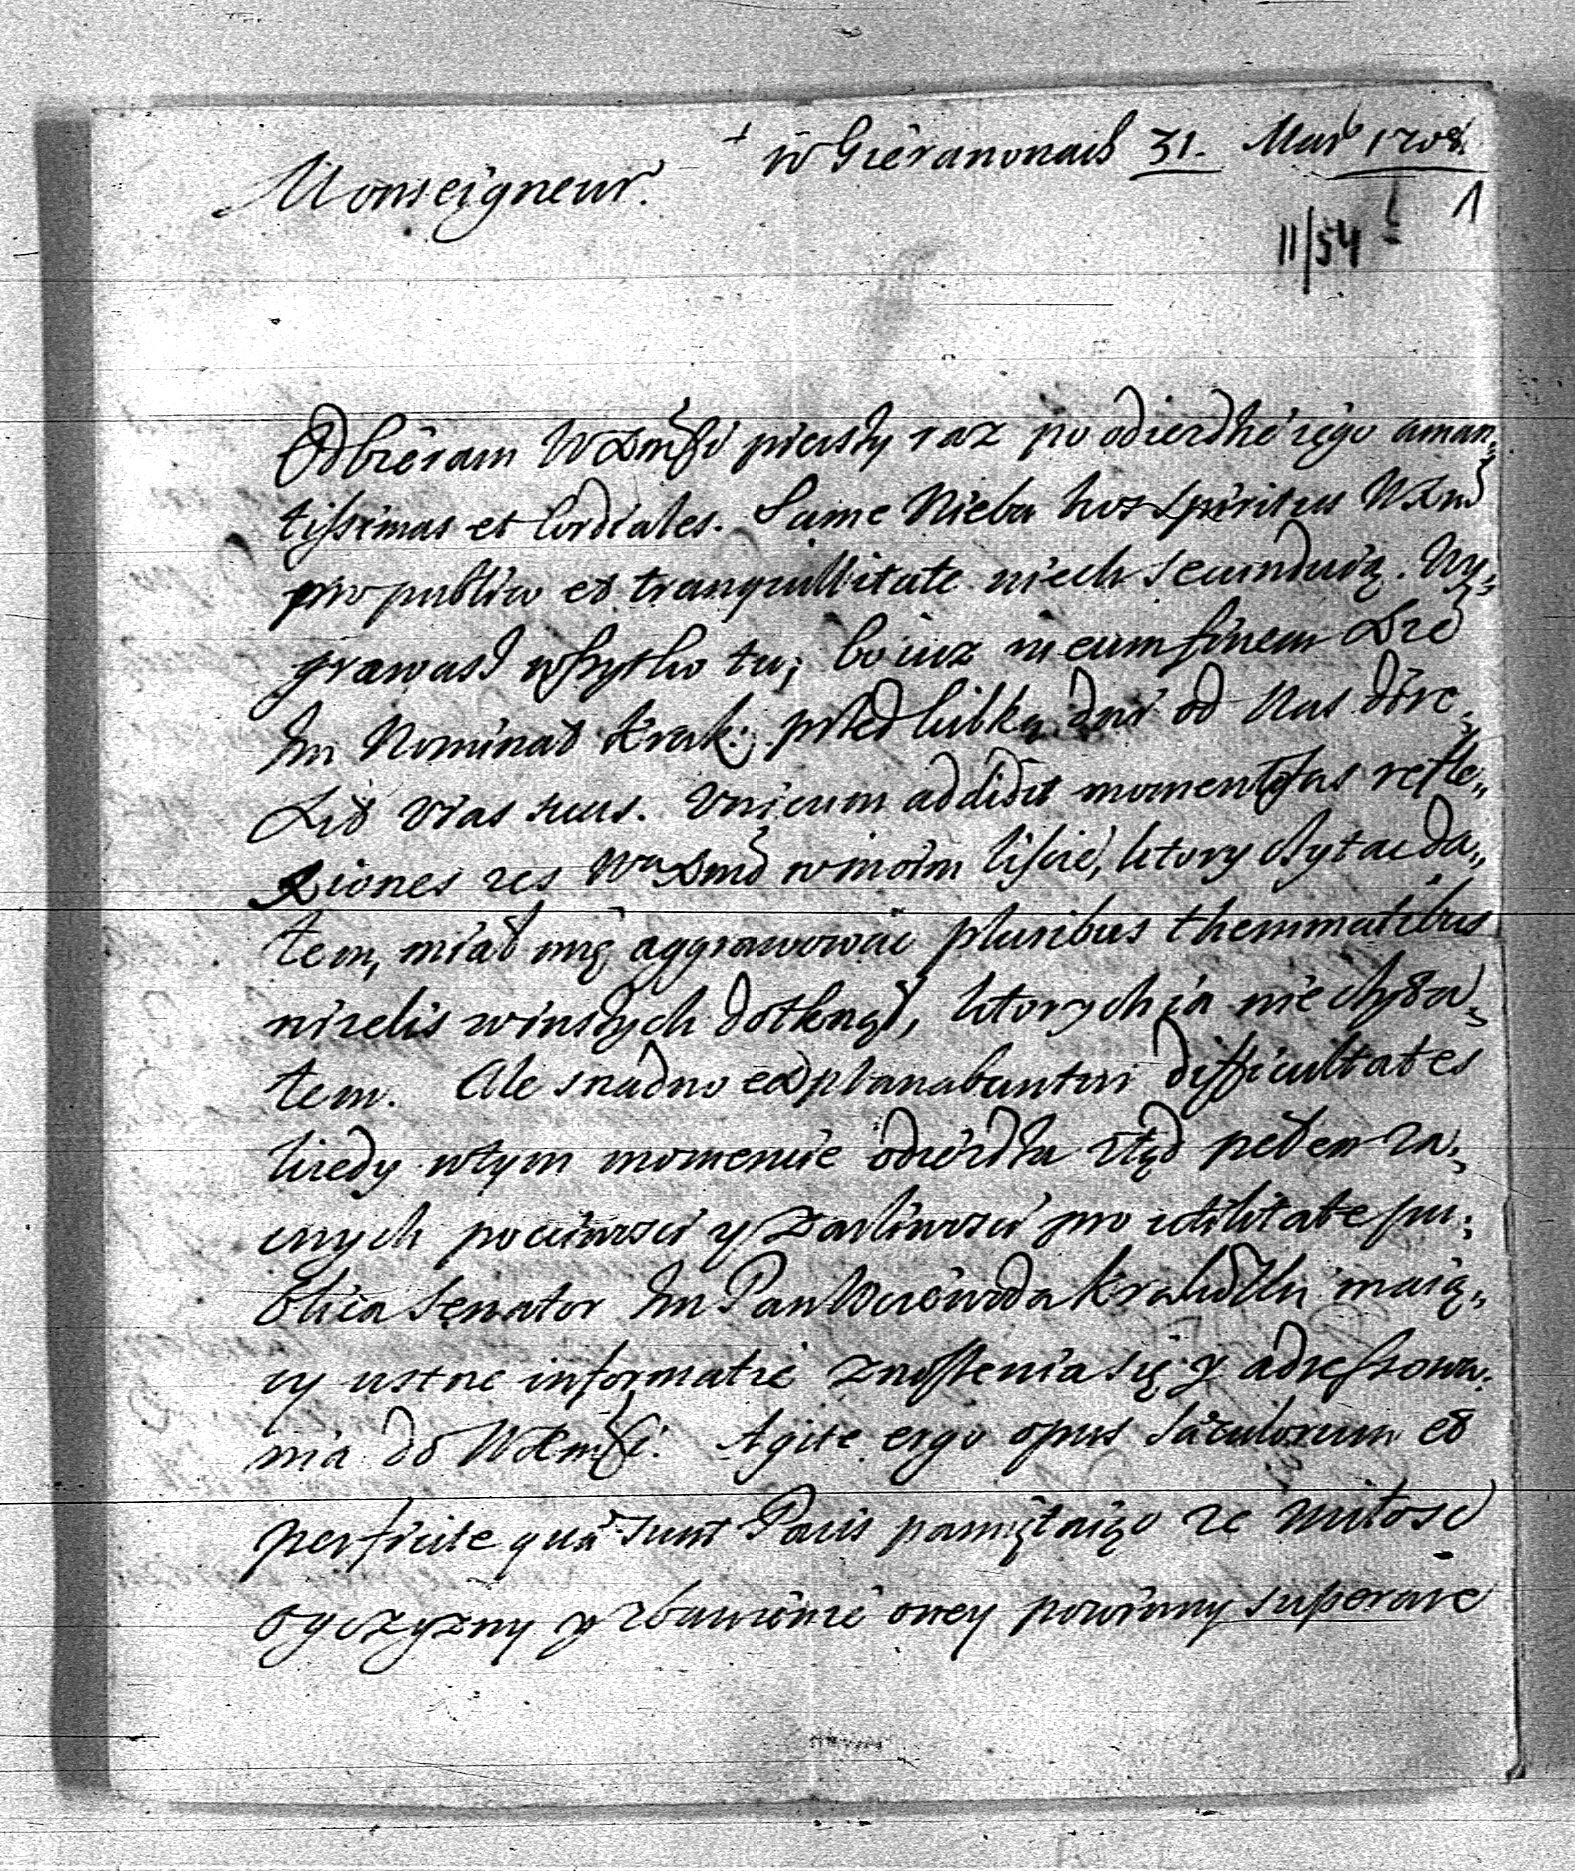 + w Gieranonach 31. Mar 1708.
Monseigneur.
1
II/54
Odbieram WXMści pierszy raz po odiezdzie iego aman,,
tissimas et Cordiales. Same Nieba hos spiritus WXM
pro publico et tranquillitate niech secunduią. Wy,,
grawasz wszytko tu, bo iuz in eum finem Xże
Im Nominat Krak: przed kilką dni od Nas dire,,
xit vias suas. Unicum addidit momentosas refle,,
xiones zes Wa Xmć w moim liście, ktory chytac da,,
tem, miał mię aggrawowac pluribus themmatibus
nizelis w inszych dotknął, ktorych ia nie chyta,,
tem. Ale snadno explanabuntur difficultates
kiedy w tym momencie odiezdza ztąd pełen za,,
cnych poczciwosci y zarliwosci pro utilitate pu,,
blica Senator Im Pan Woiewoda Krakowski maią,,
cy ustne informatie znoszenia się y adressowa,,
nia do WXMści. Agite ergo opus Saeculorum et
perficite quae sunt Pacis pamiętaiąc ze miłosc
oyczyzny y zbawienie oney powinny superare